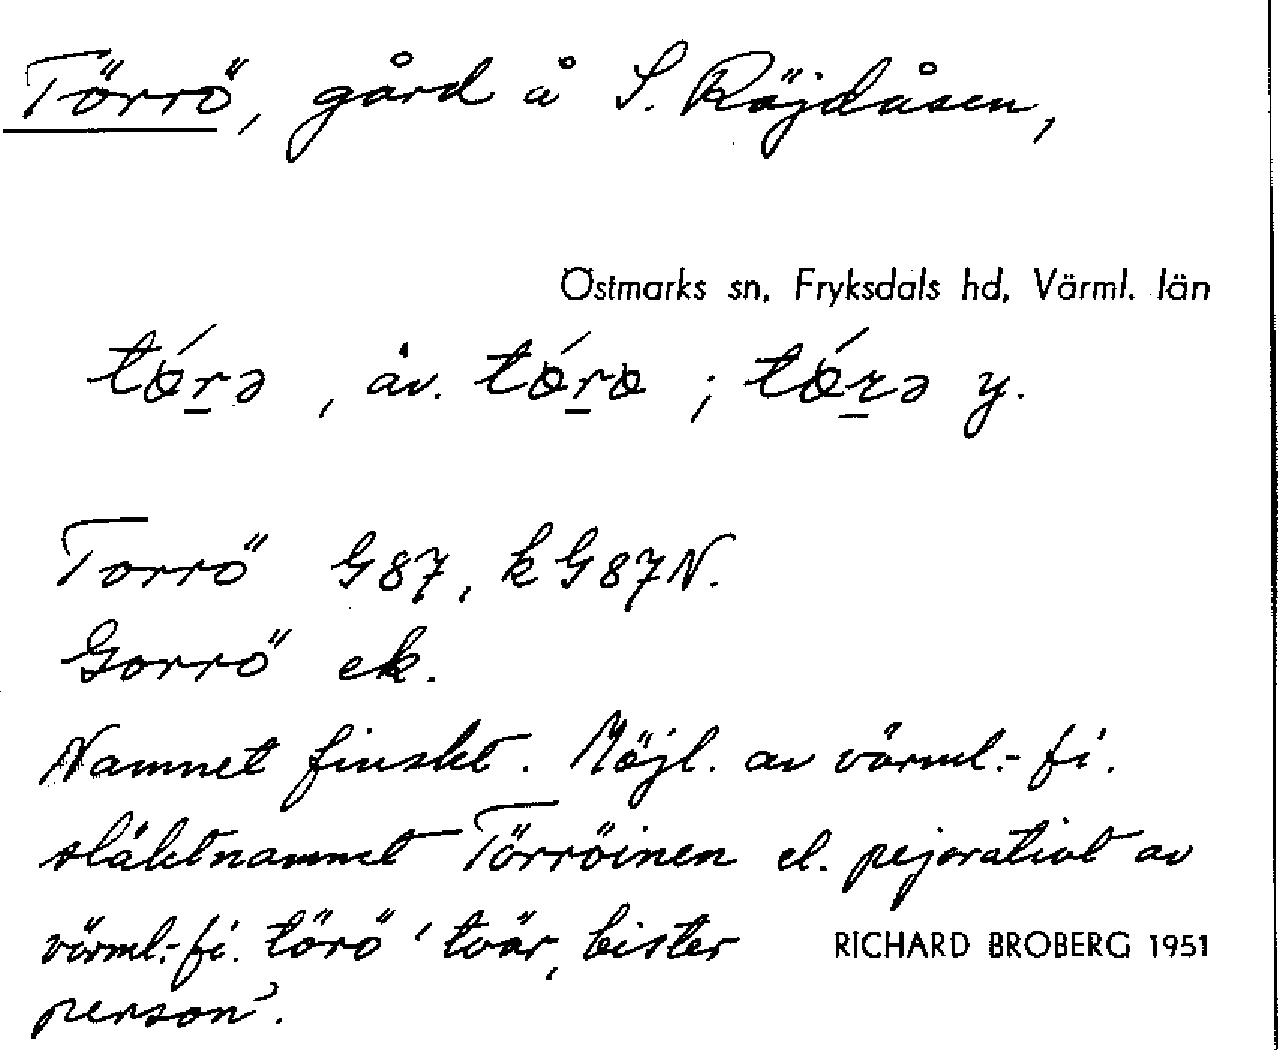 Törrö, gård å S. Röjdåsen,
Östmarks sn, Fryksdals hd, Värml. län
tǿ̀r̲ə, äv. tǿr̲ø; tǿr̲ə y.
Torrö G87, kG87N.
Gorrö ek.
Namnet finskt. Möjl. av värml.-fi.
släktnamnet Törröinen el. pejorativt av
värml.-fi. törö 'tvär, bister
RICHARD BROBERG 1951
person'.